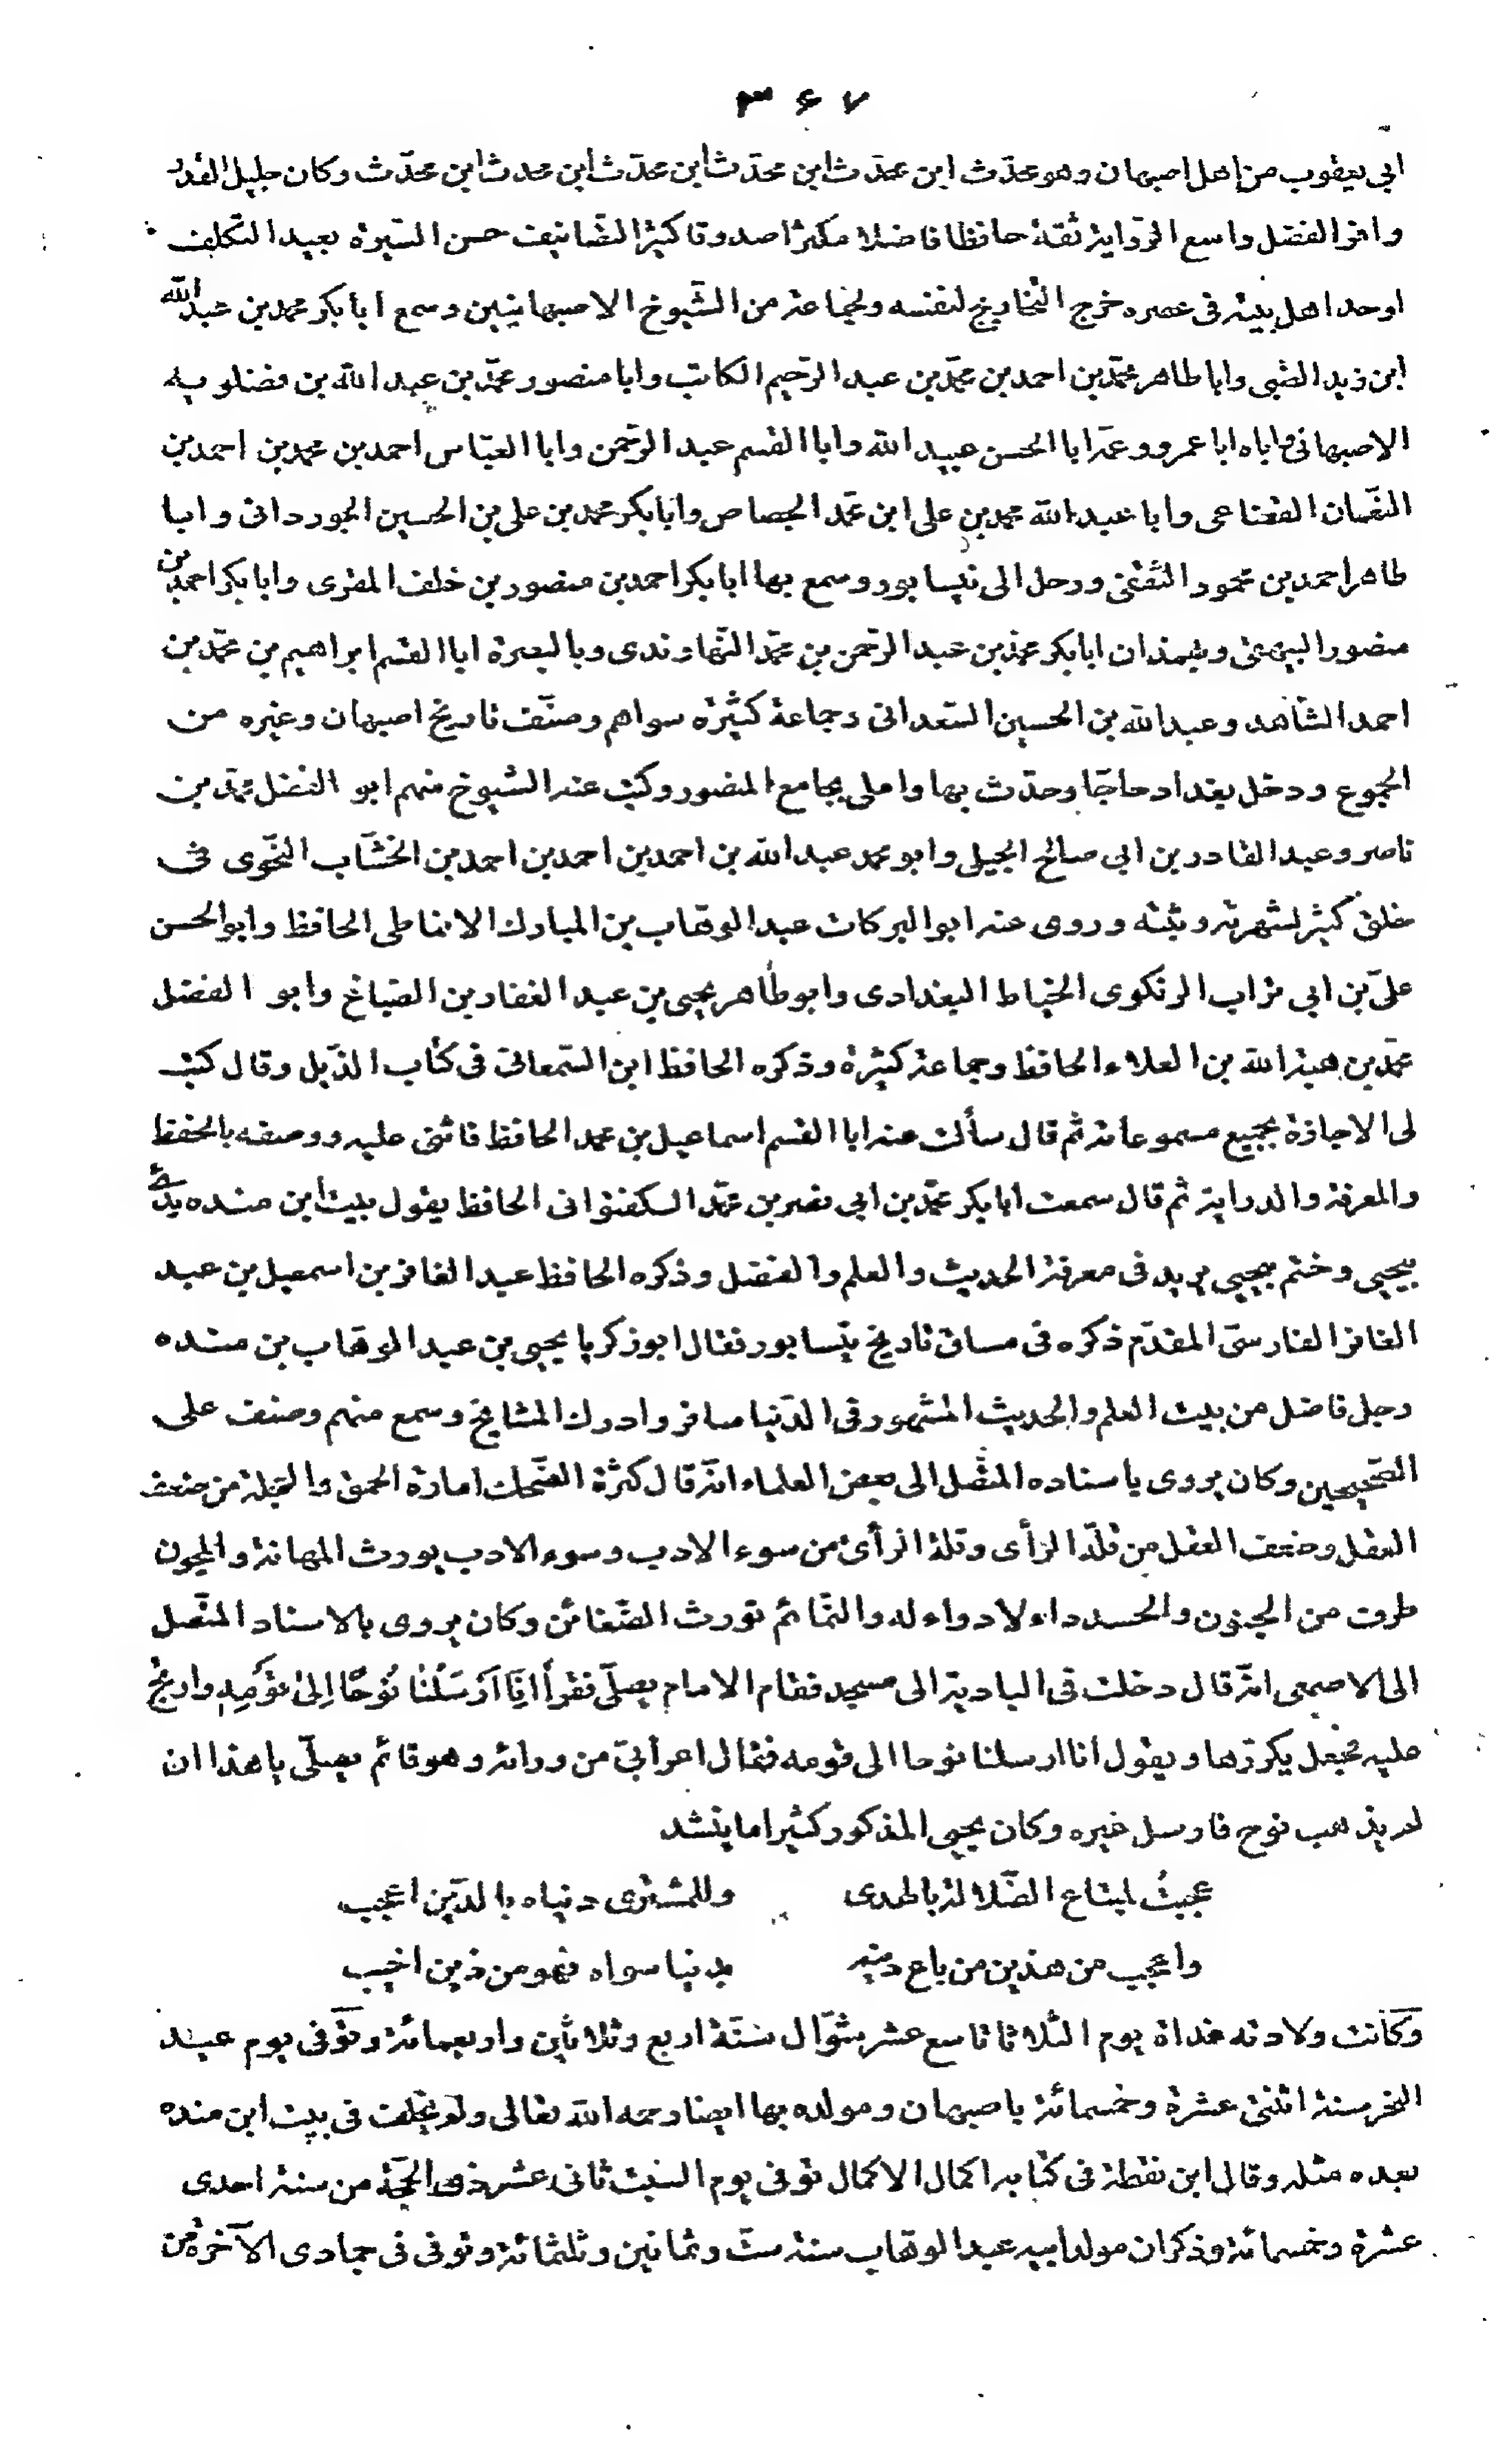 ۳۶۷
ابي يعقوب من اهل اصبهان وهو محدّث ابن محدّث ابن محدّث ابن محدّث ابن محدث ابن محدّث وكان جليل القدر
وافر الفضل واسع الرّواية ثقة حافظا فاضلا مكثرا صدوقا كثير التّصانيف حسن السّيرة بعيد التّكلف
اوحد اهل بيته فى عصره خرج التّخاريج لنفسه ولجماعة من الشّيوخ الاصبهانيين وسمع ابا بكر محمد بن عبد الله
ابن زيد الضّبى وابا طاهر محمّد بن احمد بن محمّد بن عبد الرّحيم الكاتب وابا منصور محمّد بن عبد الله بن فضلويه
الاصبهانى واباه ابا عمرو وعمّه ابا الحسن عبيد الله وابا القسم عبد الرّحمن وابا العبّاس احمد بن محمد بن احمد بن
النّعمان القضاعى وابا عبد الله محمد بن على ابن محمّد الجصاص وابا بكر محمد بن على بن الحسين الجوردانى وابا
طاهر احمد بن محمود الثّقفى ورحل الى نيسابور وسمع بها ابا بكر احمد بن منصور بن خلف المقرى وابا بكر احمد بن
منصور البيهقى وبهمذان ابا بكر محمّد بن عبد الرّحمن بن محمّد النّهاوندى وبالبصرة ابا القسم ابراهيم بن محمّد بن
احمد الشّاهد وعبد الله بن الحسين السّعدانى وجماعة كثيرة سواهم وصنّف تاريخ اصبهان وغيره من
الجموع ودخل بغداد حاجّا وحدّث بها واملى بجامع المنصور وكتب عنه الشيوخ منهم ابو الفضل محمّد بن
ناصر وعبد القادر بن ابى صالح الجيلى وابو محمد عبد الله بن احمد بن احمد بن احمد بن الخشّاب النّحوى فى
خلق كثير لشهرته وبيته وروى عنه ابو البركات عبد الوهّاب بن المبارك الانماطى الحافظ وابو الحسن
علىّ بن ابي تراب الزنكوى الخياط البغدادى وابو طاهر يحيى بن عبد الغفار بن الصّباغ وابو الفضل
محمّد بن هبة الله بن العلاء الحافظ وجماعة كثيرة وذكره الحافظ ابن السّمعانىّ فى كتاب الذّيل وقال كتب
لى الاجازة بجميع مسموعاته ثم قال سألت عنه ابا القسم اسماعيل بن محمد الحافظ فاثنى عليه ووصفه بالحفظ
والمعرفة والدراية ثم قال سمعت ابا بكر محمّد بن ابي نصر بن محمّد اللكفتوانى الحافظ يقول بيت ابن منده بدئ
بيحيى وختم بيحيى يريد فى معرفة الحديث والعلم والفضل وذكره الحافظ عبد الغافر بن اسمعيل بن عبد
الغافر الفارسىّ المقدّم ذكره فى مساق تاريخ نيسابور فقال ابو زكريا يحيى بن عبد الوهّاب بن منده
رجل فاضل من بيت العلم والحديث المشهور فى الدّنيا سافر وادرك المشايخ وسمع منهم وصنف على
الصّحيحين وكان يروى باسناده المتّصل الى بعض العلماء انّه قال كثرة الضّحك امارة الحمق والعجلة من ضعف
العقل وضعف العقل من قلّة الرّأى وقلة الرأى من سوء الادب وسوء الادب يورث المهانة والمجون
طرف من الجنون والحسد داء لا دواء له والنّمائم تورث الضّغائن وكان يروى بالاسناد المتّصل
الى الاصمعى انّه قال دخلت فى البادية الى مسجد فقام الامام يصلّى فقرأ اِنَّا اَرْسَلْنٰا نُوحًا اِلىٰ قَوْمِهِ وارتج
عليه فجعل يكررّها ويقول انا ارسلنا نوحا الى قومه فقال اعرابىّ من ورائه وهو قائم يصلّى يا هذا ان
لم يذهب نوح فارسل غيره وكان يحيى المذكور كثيرا ما ينشد
عجبتُ لمبتاع الضّلالة بالهدى وللمشترى دنياه بالدّين اعجب
واعجب من هذين من باع دينه بدنيا سواه فهو من ذين اخيب
وكانت ولادته غداة يوم الثّلاثا تاسع عشر شوّال سنة اربع وثلاثين واربعمائة وتوّفى يوم عيد
النحر سنة اثنتى عشرة وخمسمائة باصبهان ومولده بها ايضا رحمه الله تعالى ولم يخلف فى بيت ابن منده
بعده مثله وقال ابن نقطة فى كتابه اكمال الاكمال توفى يوم السّبت ثانى عشر ذى الحجّة من سنة احدى
عشرة وخمسمائة وذكر ان مولد ابيه عبد الوهّاب سنة ستّ وثمانين وثلثمائة وتوفى فى جمادى الآخرة من